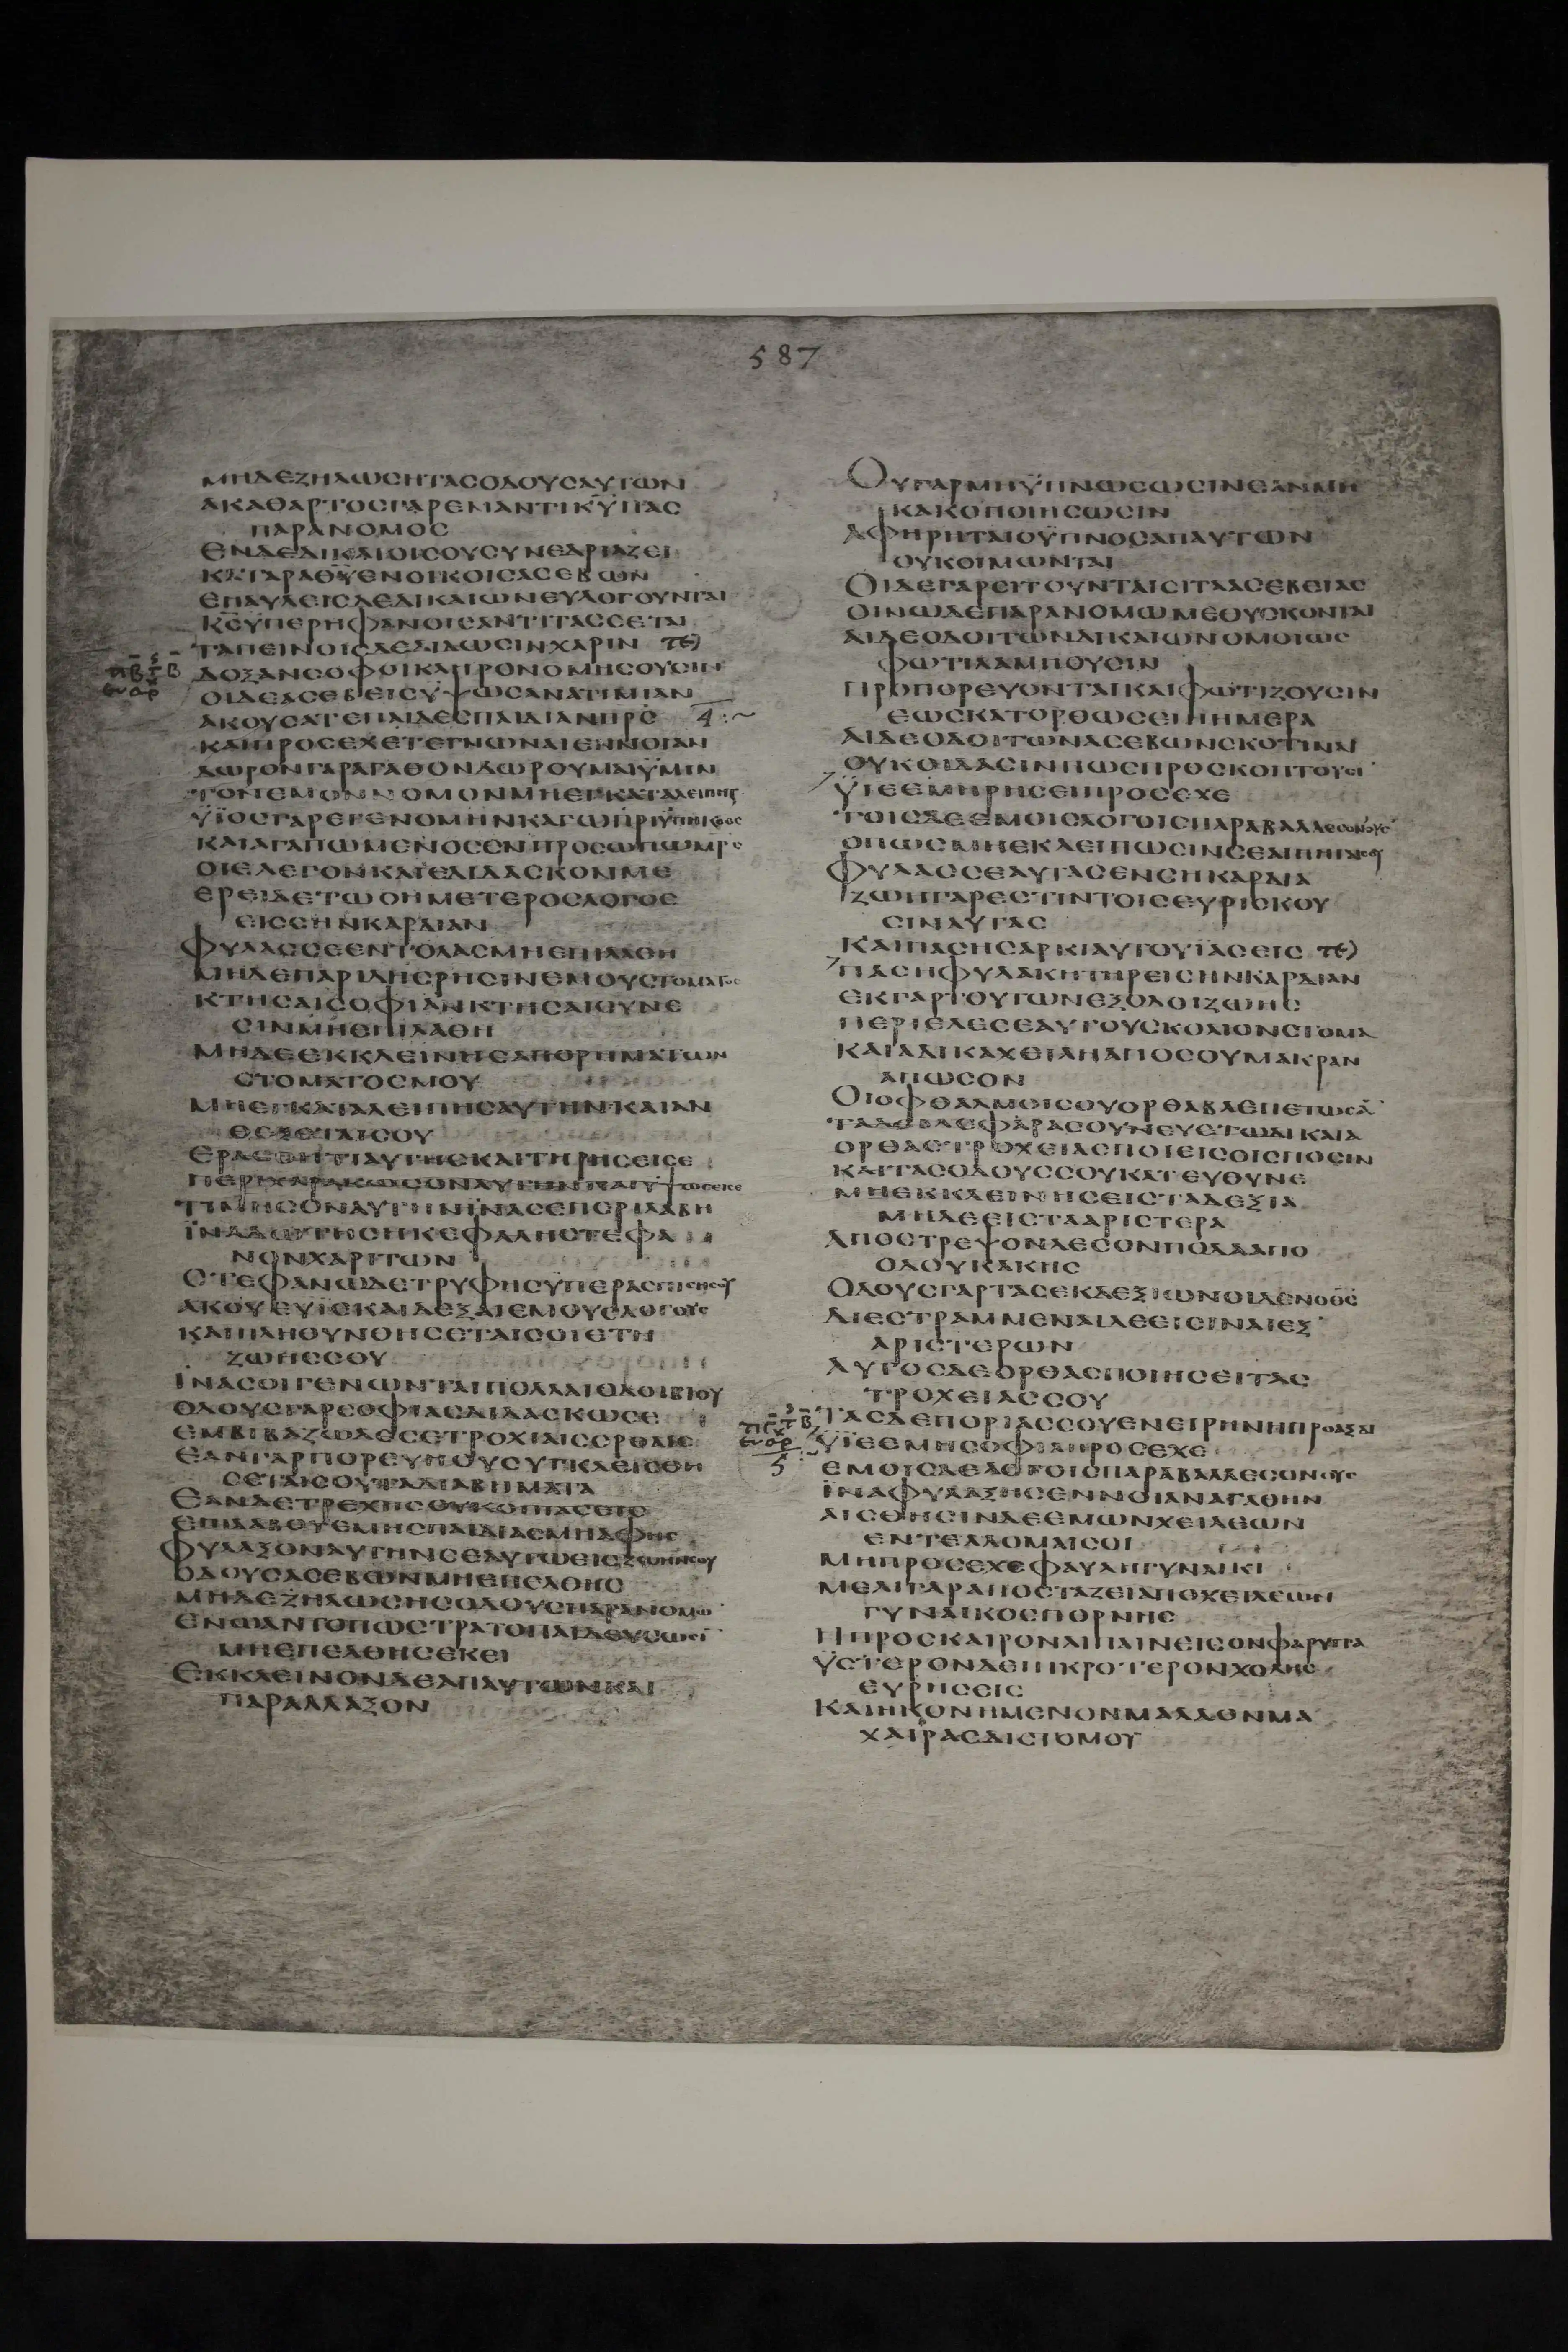 587
ΜΗΔΕΖΗΛΩϹΗϹΤΑϹΟΔΟΥϹΑΥΤΩΝ
ΑΚΑΘΑΡΤΟϹΓΑΡΕΝΑΝΤΙΚΥΠΑϹ
ΠΑΡΑΝΟΜΟϹ
ΕΝΔΕΔΙΚΑΙΟΙϹΟΥϹΥΝΕΔΡΙΑΖΕΙ
ΕΠΑΥΛΕΙϹΔΕΔΙΚΑΙΩΝΕΥΛΟΓΟΥΝΤΑΙ
ΚϹΥΠΕΡΗΦΑΝΟΙϹΑΝΤΙΤΑϹϹΕΤΑΙ
ΤΑΠΕΙΝΟΙϹΔΕΔΙΔΩϹΙΝΧΑΡΙΝ
ΔΟΞΑΝϹΟΦΟΙΚΛΗΡΟΝΟΜΗϹΟΥϹΙΝ
ΟΙΔΕΑϹΕΒΕΙϹΥΨΩϹΑΝΑΤΙΜΙΑΝ
ΑΚΟΥϹΑΤΕΠΑΙΔΕϹΠΑΙΔΙΑΝΠΡϹ
ΚΑΙΠΡΟϹΕΧΕΤΕΓΝΩΝΑΙΕΝΝΟΙΑΝ
ΔΩΡΟΝΓΑΡΑΓΑΘΟΝΔΩΡΟΥΜΑΙΫΜΙΝ
ΤΟΝΕΜΟΝΝΟΜΟΝΜΗΕΓΚΑΤΑΛΕΙΠΗΤΕ
ΫΙΟϹΓΑΡΕΓΕΝΟΜΗΝΚΑΓΩΠΡΙΫΠΗΚΟΟϹ
ΚΑΙΑΓΑΠΩΜΕΝΟϹΕΝΠΡΟϹΩΠΩΜΡϹ
ΟΙΕΛΕΓΟΝΚΑΙΕΔΙΔΑϹΚΟΝΜΕ
ΕΡΕΙΔΕΤΩΟΗΜΕΤΕΡΟϹΛΟΓΟϹ
ΕΙϹϹΗΝΚΑΡΔΙΑΝ
ΦΥΛΑϹϹΕΕΝΤΟΛΑϹΜΗΕΠΙΛΑΘΗ
ΜΗΔΕΠΑΡΙΔΗϹΡΗϹΙΝΕΜΟΥϹΤΟΜΑΤΟϹ
ΚΤΗϹΑΙϹΟΦΙΑΝΚΤΗϹΑΙϹΥΝΕ
ϹΙΝΜΗΕΠΙΛΑΘΗ
ΜΗΔΕΕΚΚΛΕΙΝΗϹΑΠΟΡΗΜΑΤΩΝ
ϹΤΟΜΑΤΟϹΜΟΥ
ΜΗΕΓΚΑΤΑΛΕΙΠΗϹΑΥΤΗΝΚΑΙΑΝ
ΘΕΞΕΤΑΙϹΟΥ
ΕΡΑϹΘΗΤΙΑΥΤΗϹΚΑΙΤΗΡΗϹΕΙϹΕ
ΠΕΡΙΧΑΡΑΚΩϹΟΝΑΥΤΗΝΚΑΙΥΨΩϹΕΙϹΕ
ΤΙΜΗϹΟΝΑΥΤΗΝΙΝΑϹΕΠΕΡΙΛΑΒΗ
ΙΝΑΔΩΤΗϹΗΚΕΦΑΛΗϹΤΕΦΑ
ΝΟΝΧΑΡΙΤΩΝ
ϹΤΕΦΑΝΩΔΕΤΡΥΦΗϹΫΠΕΡΑϹΠΙϹΗϹΟΥ
ΑΚΟΥΕΥΪΕΚΑΙΔΕΞΑΙΕΜΟΥϹΛΟΓΟΥϹ
ΚΑΙΠΛΗΘΥΝΘΗϹΕΤΑΙϹΟΙΕΤΗ
ΖΩΗϹϹΟΥ
ΙΝΑϹΟΙΓΕΝΩΝΤΑΙΠΟΛΛΑΙΟΔΟΙΒΙΟΥ
ΟΔΟΥϹΓΑΡϹΟΦΙΑϹΔΙΔΑϹΚΩϹΕ
ΕΜΒΙΒΑΖΩΔΕϹΕΤΡΟΧΙΑΙϹΟΡΘΑΙϹ
ΕΑΝΓΑΡΠΟΡΕΥΗΟΥϹΥΓΚΛΕΙϹΘΗ
ϹΕΤΑΙϹΟΥΤΑΔΙΑΒΗΜΑΤΑ
ΕΑΝΔΕΤΡΕΧΗϹΟΥΚΟΠΙΑϹΕΙϹ
ΕΠΙΛΑΒΟΥΕΜΗϹΠΑΙΔΙΑϹΜΗΑΦΗϹ
ΦΥΛΑΞΟΝΑΥΤΗΝϹΕΑΥΤΩΕΙϹΖΩΗΝϹΟΥ
ΟΔΟΥϹΑϹΕΒΩΝΜΗΕΠΕΛΘΗϹ
ΜΗΔΕΖΗΛΩϹΗϹΟΔΟΥϹΠΑΡΑΝΟΜΩ
ΕΝΩΑΝΤΟΠΩϹΤΡΑΤΟΠΑΙΔΕΥϹΩϹΙ
ΜΗΕΠΕΛΘΗϹΕΚΕΙ
ΕΚΚΛΕΙΝΟΝΔΕΑΠΑΥΤΩΝΚΑΙ
ΠΑΡΑΛΛΑΞΟΝ
ΟΥΓΑΡΜΗΫΠΝΩϹΩϹΙΝΕΑΝΜΗ
ΚΑΚΟΠΟΙΗϹΩϹΙΝ
ΑΦΗΡΗΤΑΙΟΫΠΝΟϹΑΠΑΥΤΩΝ
ΟΥΚΟΙΜΩΝΤΑΙ
ΟΙΔΕΓΑΡϹΙΤΟΥΝΤΑΙϹΙΤΑΑϹΕΒΕΙΑϹ
ΟΙΝΩΔΕΠΑΡΑΝΟΜΩΜΕΘΥϹΚΟΝΤΑΙ
ΑΙΔΕΟΔΟΙΤΩΝΔΙΚΑΙΩΝΟΜΟΙΩϹ
ΦΩΤΙΛΑΜΠΟΥϹΙΝ
ΠΡΟΠΟΡΕΥΟΝΤΑΙΚΑΙΦΩΤΙΖΟΥϹΙΝ
ΕΩϹΚΑΤΟΡΘΩϹΕΙΗΗΜΕΡΑ
ΑΙΔΕΟΔΟΙΤΩΝΑϹΕΒΩΝϹΚΟΤΙΝΑΙ
ΟΥΚΟΙΔΑϹΙΝΠΩϹΠΡΟϹΚΟΠΤΟΥϹΙ
ΫΙΕΕΜΗΡΗϹΕΙΠΡΟϹΕΧΕ
ΤΟΙϹΔΕΕΜΟΙϹΛΟΓΟΙϹΠΑΡΑΒΑΛΛΕϹΟΝΟΥϹ
ΟΠΩϹΜΗΕΚΛΕΙΠΩϹΙΝϹΕΑΙΠΗΓΑΙϹΟΥ
ΦΥΛΑϹϹΕΑΥΤΑϹΕΝϹΗΚΑΡΔΙΑ
ΖΩΗΓΑΡΕϹΤΙΝΤΟΙϹΕΥΡΙϹΚΟΥ
ϹΙΝΑΥΤΑϹ
ΚΑΙΠΑϹΗϹΑΡΚΙΑΥΤΟΥΪΑϹΕΙϹ
ΠΑϹΗΦΥΛΑΚΗΤΗΡΕΙϹΗΝΚΑΡΔΙΑΝ
ΕΚΓΑΡΤΟΥΤΩΝΕΞΟΔΟΙΖΩΗϹ
ΠΕΡΙΕΛΕϹΕΑΥΤΟΥϹΚΟΛΙΟΝϹΤΟΜΑ
ΚΑΙΑΔΙΚΑΧΕΙΛΗΑΠΟϹΟΥΜΑΚΡΑΝ
ΑΠΩϹΟΝ
ΟΙΟΦΘΑΛΜΟΙϹΟΥΟΡΘΑΒΛΕΠΕΤΩϹΑ
ΤΑΔΕΒΛΕΦΑΡΑϹΟΥΝΕΥΕΤΩΔΙΚΑΙΑ
ΟΡΘΑϹΤΡΟΧΕΙΑϹΠΟΙΕΙϹΟΙϹΠΟϹΙΝ
ΚΑΙΤΑϹΟΔΟΥϹϹΟΥΚΑΤΕΥΘΥΝΕ
ΜΗΕΚΚΛΕΙΝΗϹΕΙϹΤΑΔΕΞΙΑ
ΜΗΔΕΕΙϹΤΑΑΡΙϹΤΕΡΑ
ΑΠΟϹΤΡΕΨΟΝΔΕϹΟΝΠΟΔΑΑΠΟ
ΟΔΟΥΚΑΚΗϹ
ΟΔΟΥϹΓΑΡΤΑϹΕΚΔΕΞΙΩΝΟΙΔΕΝΟΘϹ
ΔΙΕϹΤΡΑΜΜΕΝΑΙΔΕΕΙϹΙΝΑΙΕΞ
ΑΡΙϹΤΕΡΩΝ
ΑΥΤΟϹΔΕΟΡΘΑϹΠΟΙΗϹΕΙΤΑϹ
ΤΡΟΧΕΙΑϹϹΟΥ
ΤΑϹΔΕΠΟΡΙΑϹϹΟΥΕΝΕΙΡΗΝΗΠΡΟΑΞΑΙ
ΫΙΕΕΜΗϹΟΦΙΑΠΡΟϹΕΧΕ
ΕΜΟΙϹΔΕΛΟΓΟΙϹΠΑΡΑΒΑΛΛΕϹΟΝΟΥϹ
ΙΝΑΦΥΛΑΞΗϹΕΝΝΟΙΑΝΑΓΑΘΗΝ
ΑΙϹΘΗϹΙΝΔΕΕΜΩΝΧΕΙΛΕΩΝ
ΕΝΤΕΛΛΟΜΑΙϹΟΙ
ΜΗΠΡΟϹΕΧΕΦΑΥΛΗΓΥΝΑΙΚΙ
ΜΕΛΙΓΑΡΑΠΟϹΤΑΖΕΙΑΠΟΧΕΙΛΕΩΝ
ΓΥΝΑΙΚΟϹΠΟΡΝΗϹ
ΗΠΡΟϹΚΑΙΡΟΝΛΙΠΑΙΝΕΙϹΟΝΦΑΡΥΓΓΑ
ΫϹΤΕΡΟΝΔΕΠΙΚΡΟΤΕΡΟΝΧΟΛΗϹ
ΕΥΡΗϹΕΙϹ
ΚΑΙΗΚΟΝΗΜΕΝΟΝΜΑΛΛΟΝΜΑ
ΧΑΙΡΑϹΔΙϹΤΟΜΟΥ